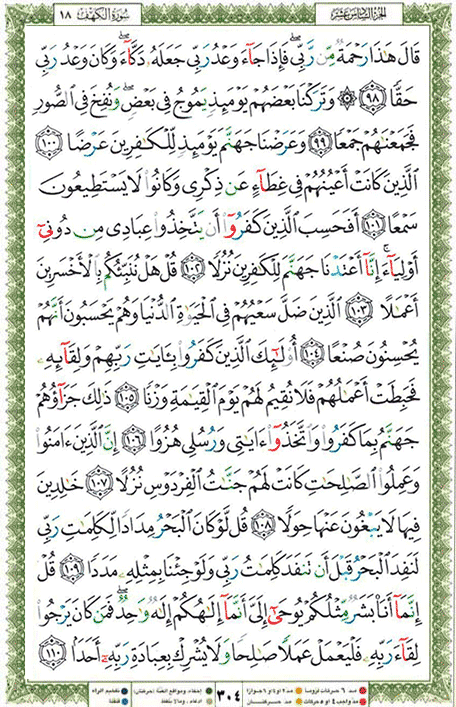 الجزء السادس عشر
سورة الكهف ١٨
قَالَ هَٰذَا رَحْمَةٌ مِّن رَّبِّي ۖ فَإِذَا جَاءَ وَعْدُ رَبِّي جَعَلَهُ دَكَّاءَ ۖ وَكَانَ وَعْدُ رَبِّي
حَقًّا ﴿٩٨﴾ ۞ وَتَرَكْنَا بَعْضَهُمْ يَوْمَئِذٍ يَمُوجُ فِي بَعْضٍ ۖ وَنُفِخَ فِي الصُّورِ
فَجَمَعْنَاهُمْ جَمْعًا ﴿٩٩﴾ وَعَرَضْنَا جَهَنَّمَ يَوْمَئِذٍ لِّلْكَافِرِينَ عَرْضًا ﴿١٠٠﴾
الَّذِينَ كَانَتْ أَعْيُنُهُمْ فِي غِطَاءٍ عَن ذِكْرِي وَكَانُوا لَا يَسْتَطِيعُونَ
سَمْعًا ﴿١٠١﴾ أَفَحَسِبَ الَّذِينَ كَفَرُوا أَن يَتَّخِذُوا عِبَادِي مِن دُونِي
أَوْلِيَاءَ ۚ إِنَّا أَعْتَدْنَا جَهَنَّمَ لِلْكَافِرِينَ نُزُلًا ﴿١٠٢﴾ قُلْ هَلْ نُنَبِّئُكُم بِالْأَخْسَرِينَ
أَعْمَالًا ﴿١٠٣﴾ الَّذِينَ ضَلَّ سَعْيُهُمْ فِي الْحَيَاةِ الدُّنْيَا وَهُمْ يَحْسَبُونَ أَنَّهُمْ
يُحْسِنُونَ صُنْعًا ﴿١٠٤﴾ أُولَٰئِكَ الَّذِينَ كَفَرُوا بِآيَاتِ رَبِّهِمْ وَلِقَائِهِ
فَحَبِطَتْ أَعْمَالُهُمْ فَلَا نُقِيمُ لَهُمْ يَوْمَ الْقِيَامَةِ وَزْنًا ﴿١٠٥﴾ ذَٰلِكَ جَزَاؤُهُمْ
جَهَنَّمُ بِمَا كَفَرُوا وَاتَّخَذُوا آيَاتِي وَرُسُلِي هُزُوًا ﴿١٠٦﴾ إِنَّ الَّذِينَ آمَنُوا
وَعَمِلُوا الصَّالِحَاتِ كَانَتْ لَهُمْ جَنَّاتُ الْفِرْدَوْسِ نُزُلًا ﴿١٠٧﴾ خَالِدِينَ
فِيهَا لَا يَبْغُونَ عَنْهَا حِوَلًا ﴿١٠٨﴾ قُل لَّوْ كَانَ الْبَحْرُ مِدَادًا لِّكَلِمَاتِ رَبِّي
لَنَفِدَ الْبَحْرُ قَبْلَ أَن تَنفَدَ كَلِمَاتُ رَبِّي وَلَوْ جِئْنَا بِمِثْلِهِ مَدَدًا ﴿١٠٩﴾ قُلْ
إِنَّمَا أَنَا بَشَرٌ مِّثْلُكُمْ يُوحَىٰ إِلَيَّ أَنَّمَا إِلَٰهُكُمْ إِلَٰهٌ وَاحِدٌ ۖ فَمَن كَانَ يَرْجُو
لِقَاءَ رَبِّهِ فَلْيَعْمَلْ عَمَلًا صَالِحًا وَلَا يُشْرِكْ بِعِبَادَةِ رَبِّهِ أَحَدًا ﴿١١٠﴾
٣٠٤